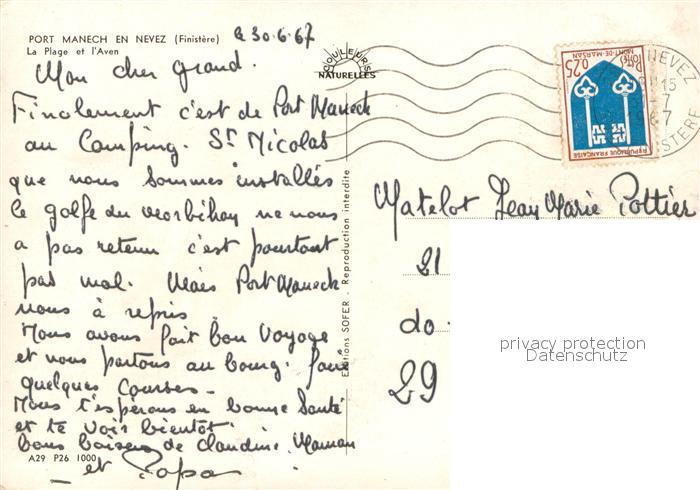 PORT MANECH EN NEVEZ (Finistère)
La Plage et l'Aven
le 30.6.67
COULEURS NATURELLES
Mon cher grand.
Finalement c'est de Port Maneck
au Camping. St Nicolas
que nous sommes installés
le golfe du morbihan ne nous
a pas retenu c'est pourtant
pas mal. Mais Port Maneck
nous à repris
Nous avons fait bon voyage
et nous partons au bourg. faire
quelques courses.
Nous t'espérons en bonne santé
et te voir bientôt.
bons baisers de Claudine. Maman
et Papa
A29 P26 1000
Editions SOFER - Reproduction interdite
POSTES
MONT-DE-MARSAN
0,25
REPUBLIQUE FRANÇAISE
NEVEZ
15
-7
1967
FINISTERE
Matelot Jean Marie Pottier
21
do
29
privacy protection
Datenschutz